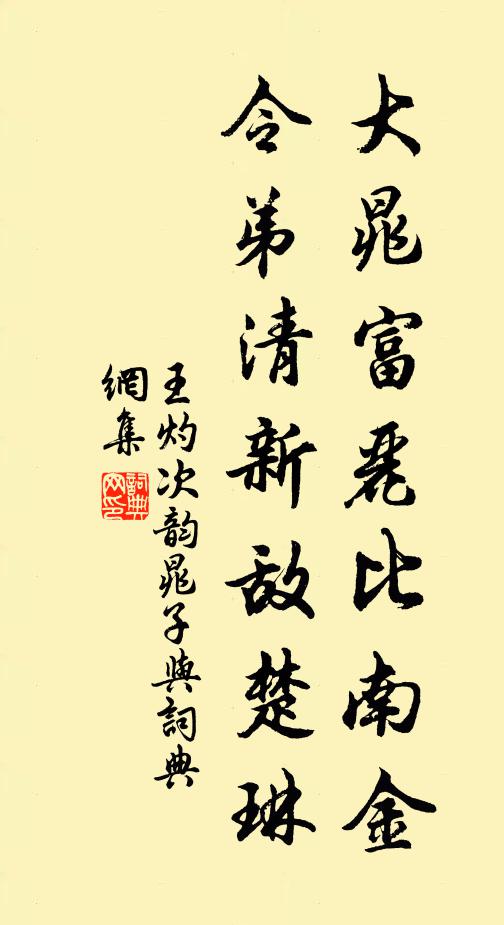 大晁富麗比南金
令弟清新敵楚琳
王灼次韵晁子與詞典
網集
詞典網印